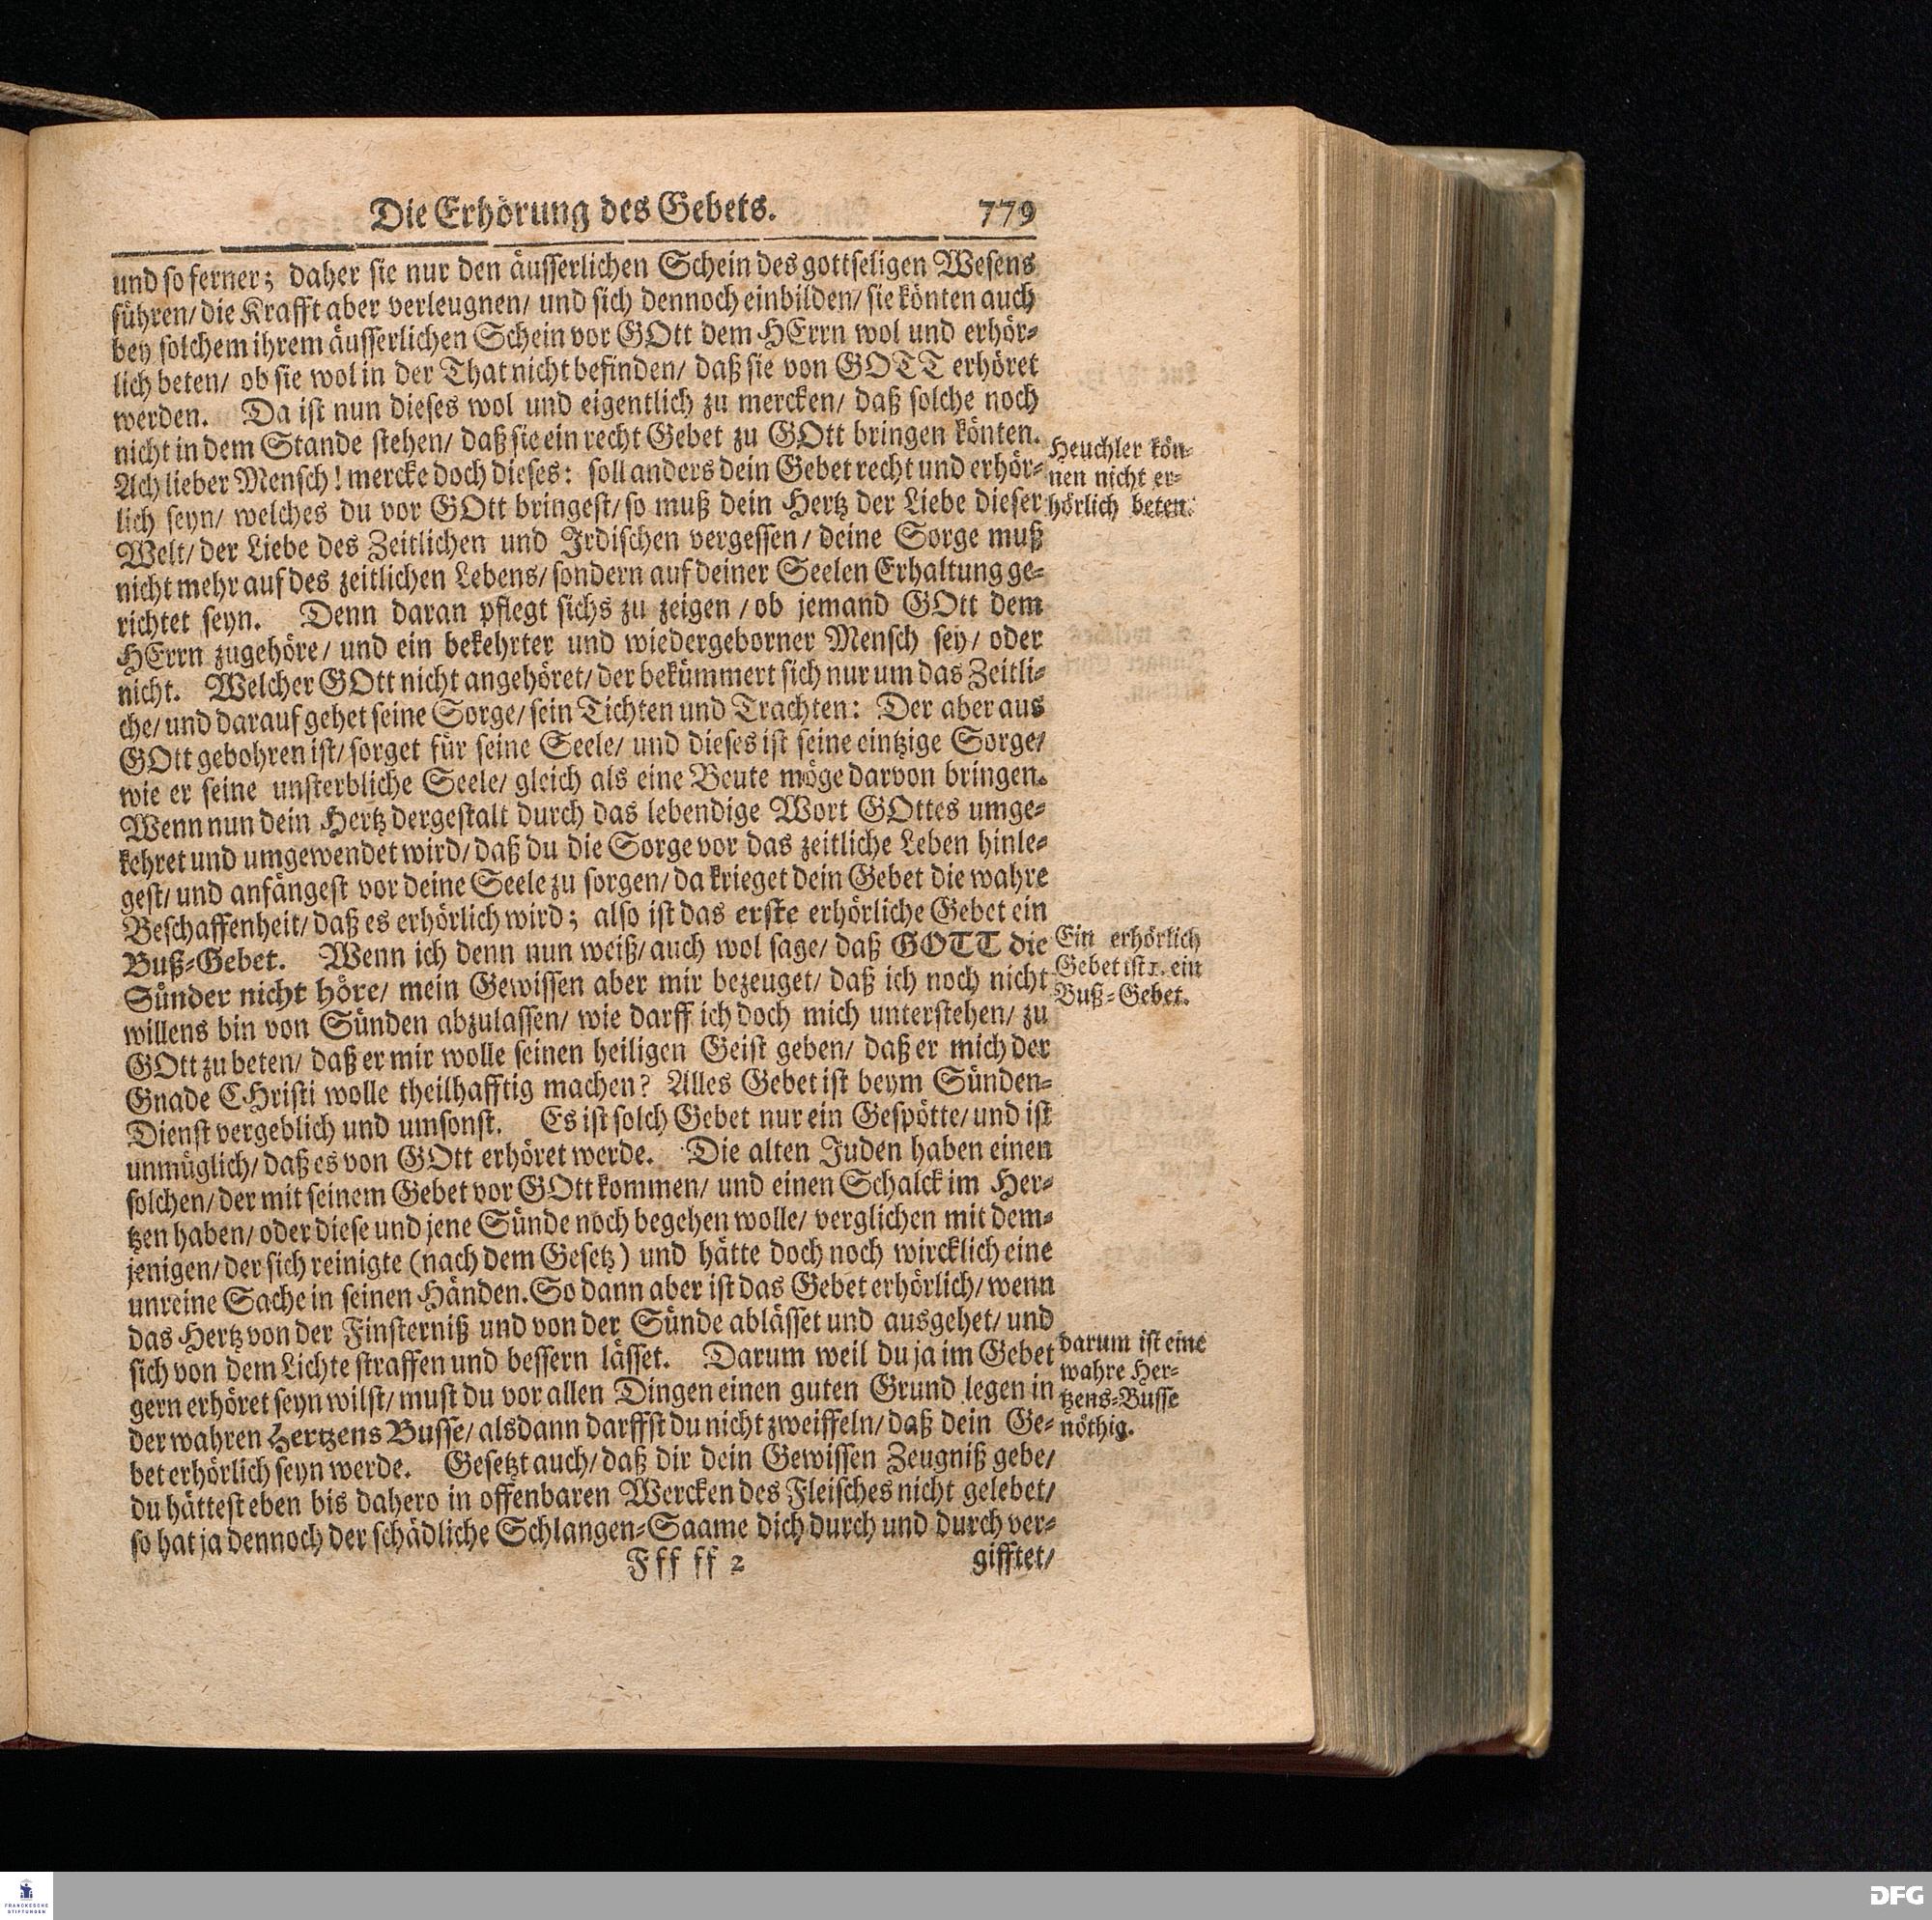 Die Erhörung des Gebets. 779
und so ferner; daher sie nur den äusserlichen Schein des gottseligen Wesens
führen/ die Krafft aber verleugnen/ und sich dennoch einbilden/ sie könten auch
bey solchem ihrem äusserlichen Schein vor GOtt dem HErrn wol und erhör-
lich beten/ ob sie wol in der That nicht befinden/ daß sie von GOTT erhöret
werden. Da ist nun dieses wol und eigentlich zu mercken/ daß solche noch
nicht in dem Stande stehen/ daß sie ein recht Gebet zu GOtt bringen könten.
Ach lieber Mensch! mercke doch dieses: soll anders dein Gebet recht und erhör-
lich seyn/ welches du vor GOtt bringest/ so muß dein Hertz der Liebe dieser
Welt/ der Liebe des Zeitlichen und Irdischen vergessen/ deine Sorge muß
nicht mehr auf des zeitlichen Lebens/ sondern auf deiner Seelen Erhaltung ge-
richtet seyn. Denn daran pflegt sichs zu zeigen/ ob jemand GOtt dem
HErrn zugehöre/ und ein bekehrter und wiedergeborner Mensch sey/ oder
nicht. Welcher GOtt nicht angehöret/ der bekümmert sich nur um das Zeitli-
che/ und darauf gehet seine Sorge/ sein Tichten und Trachten: Der aber aus
GOtt gebohren ist/ sorget für seine Seele/ und dieses ist seine eintzige Sorge/
wie er seine unsterbliche Seele/ gleich als eine Beute möge darvon bringen.
Wenn nun dein Hertz dergestalt durch das lebendige Wort GOttes umge-
kehret und umgewendet wird/ daß du die Sorge vor das zeitliche Leben hinle-
gest/ und anfängest vor deine Seele zu sorgen/ da krieget dein Gebet die wahre
Beschaffenheit/ daß es erhörlich wird; also ist das erste erhörliche Gebet ein
Buß-Gebet. Wenn ich denn nun weiß/ auch wol sage/ daß GOTT die
Sünder nicht höre/ mein Gewissen aber mir bezeuget/ daß ich noch nicht
willens bin von Sünden abzulassen/ wie darff ich doch mich unterstehen/ zu
GOtt zu beten/ daß er mir wolle seinen heiligen Geist geben/ daß er mich der
Gnade CHristi wolle theilhafftig machen? Alles Gebet ist beym Sünden-
Dienst vergeblich und umsonst. Es ist solch Gebet nur ein Gespötte/ und ist
unmüglich/ daß es von GOtt erhöret werde. Die alten Juden haben einen
solchen/ der mit seinem Gebet vor GOtt kommen/ und einen Schalck im Her-
tzen haben/ oder diese und jene Sünde noch begehen wolle/ verglichen mit dem-
jenigen/ der sich reinigte (nach dem Gesetz) und hätte doch noch wircklich eine
unreine Sache in seinen Händen. So dann aber ist das Gebet erhörlich/ wenn
das Hertz von der Finsterniß und von der Sünde ablässet und ausgehet/ und
sich von dem Lichte straffen und bessern lässet. Darum weil du ja im Gebet
gern erhöret seyn wilst/ must du vor allen Dingen einen guten Grund legen in
der wahren Hertzens Busse/ alsdann darffst du nicht zweiffeln/ daß dein Ge-
bet erhörlich seyn werde. Gesetzt auch/ daß dir dein Gewissen Zeugniß gebe/
du hättest eben bis dahero in offenbaren Wercken des Fleisches nicht gelebet/
so hat ja dennoch der schädliche Schlangen-Saame dich durch und durch ver-
Fff ff 2 gifftet/
Heuchler kön-
nen nicht er-
hörlich beten.
Ein erhörlich
Gebet ist 1. ein
Buß-Gebet.
darum ist eine
wahre Her-
tzens-Busse
nöthig.
FRANCKESCHE
STIFTUNGEN
DFG